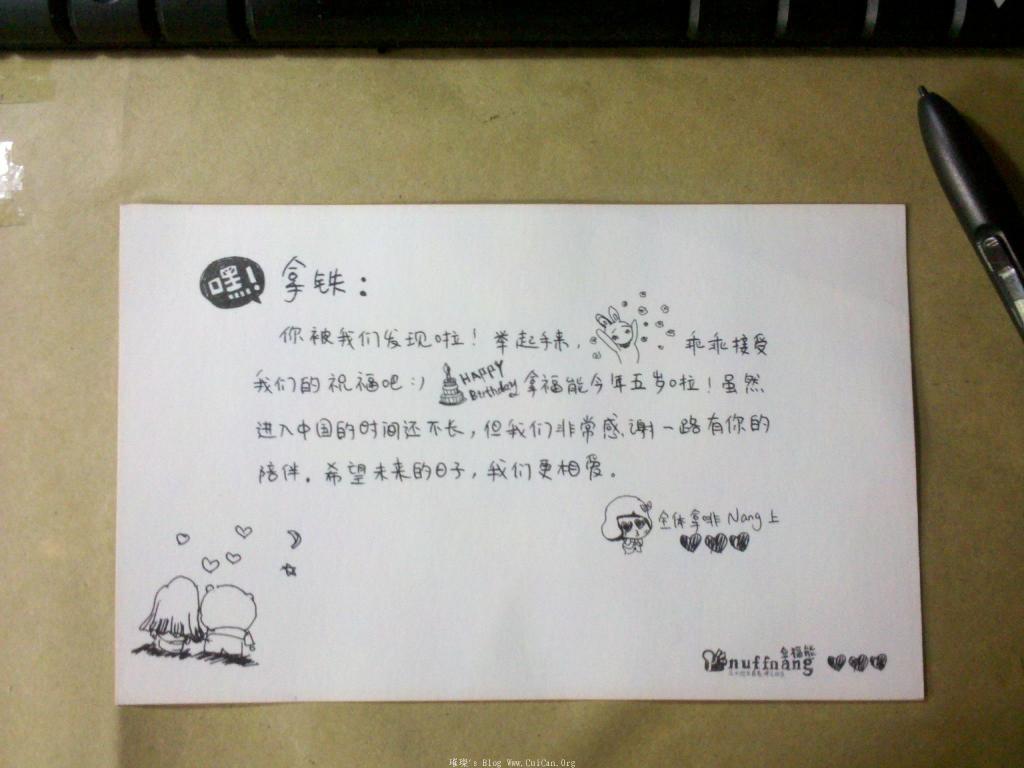 嘿! 拿铁：
你被我们发现啦！举起手来，乖乖接受
我们的祝福吧:) HAPPY Birthday 拿福能今年五岁啦！虽然
进入中国的时间还不长，但我们非常感谢一路有你的
陪伴。希望未来的日子，我们更相爱。
全体拿啡 Nang 上
拿福能
nuffnang
璀璨's Blog Www.CuiCan.Org